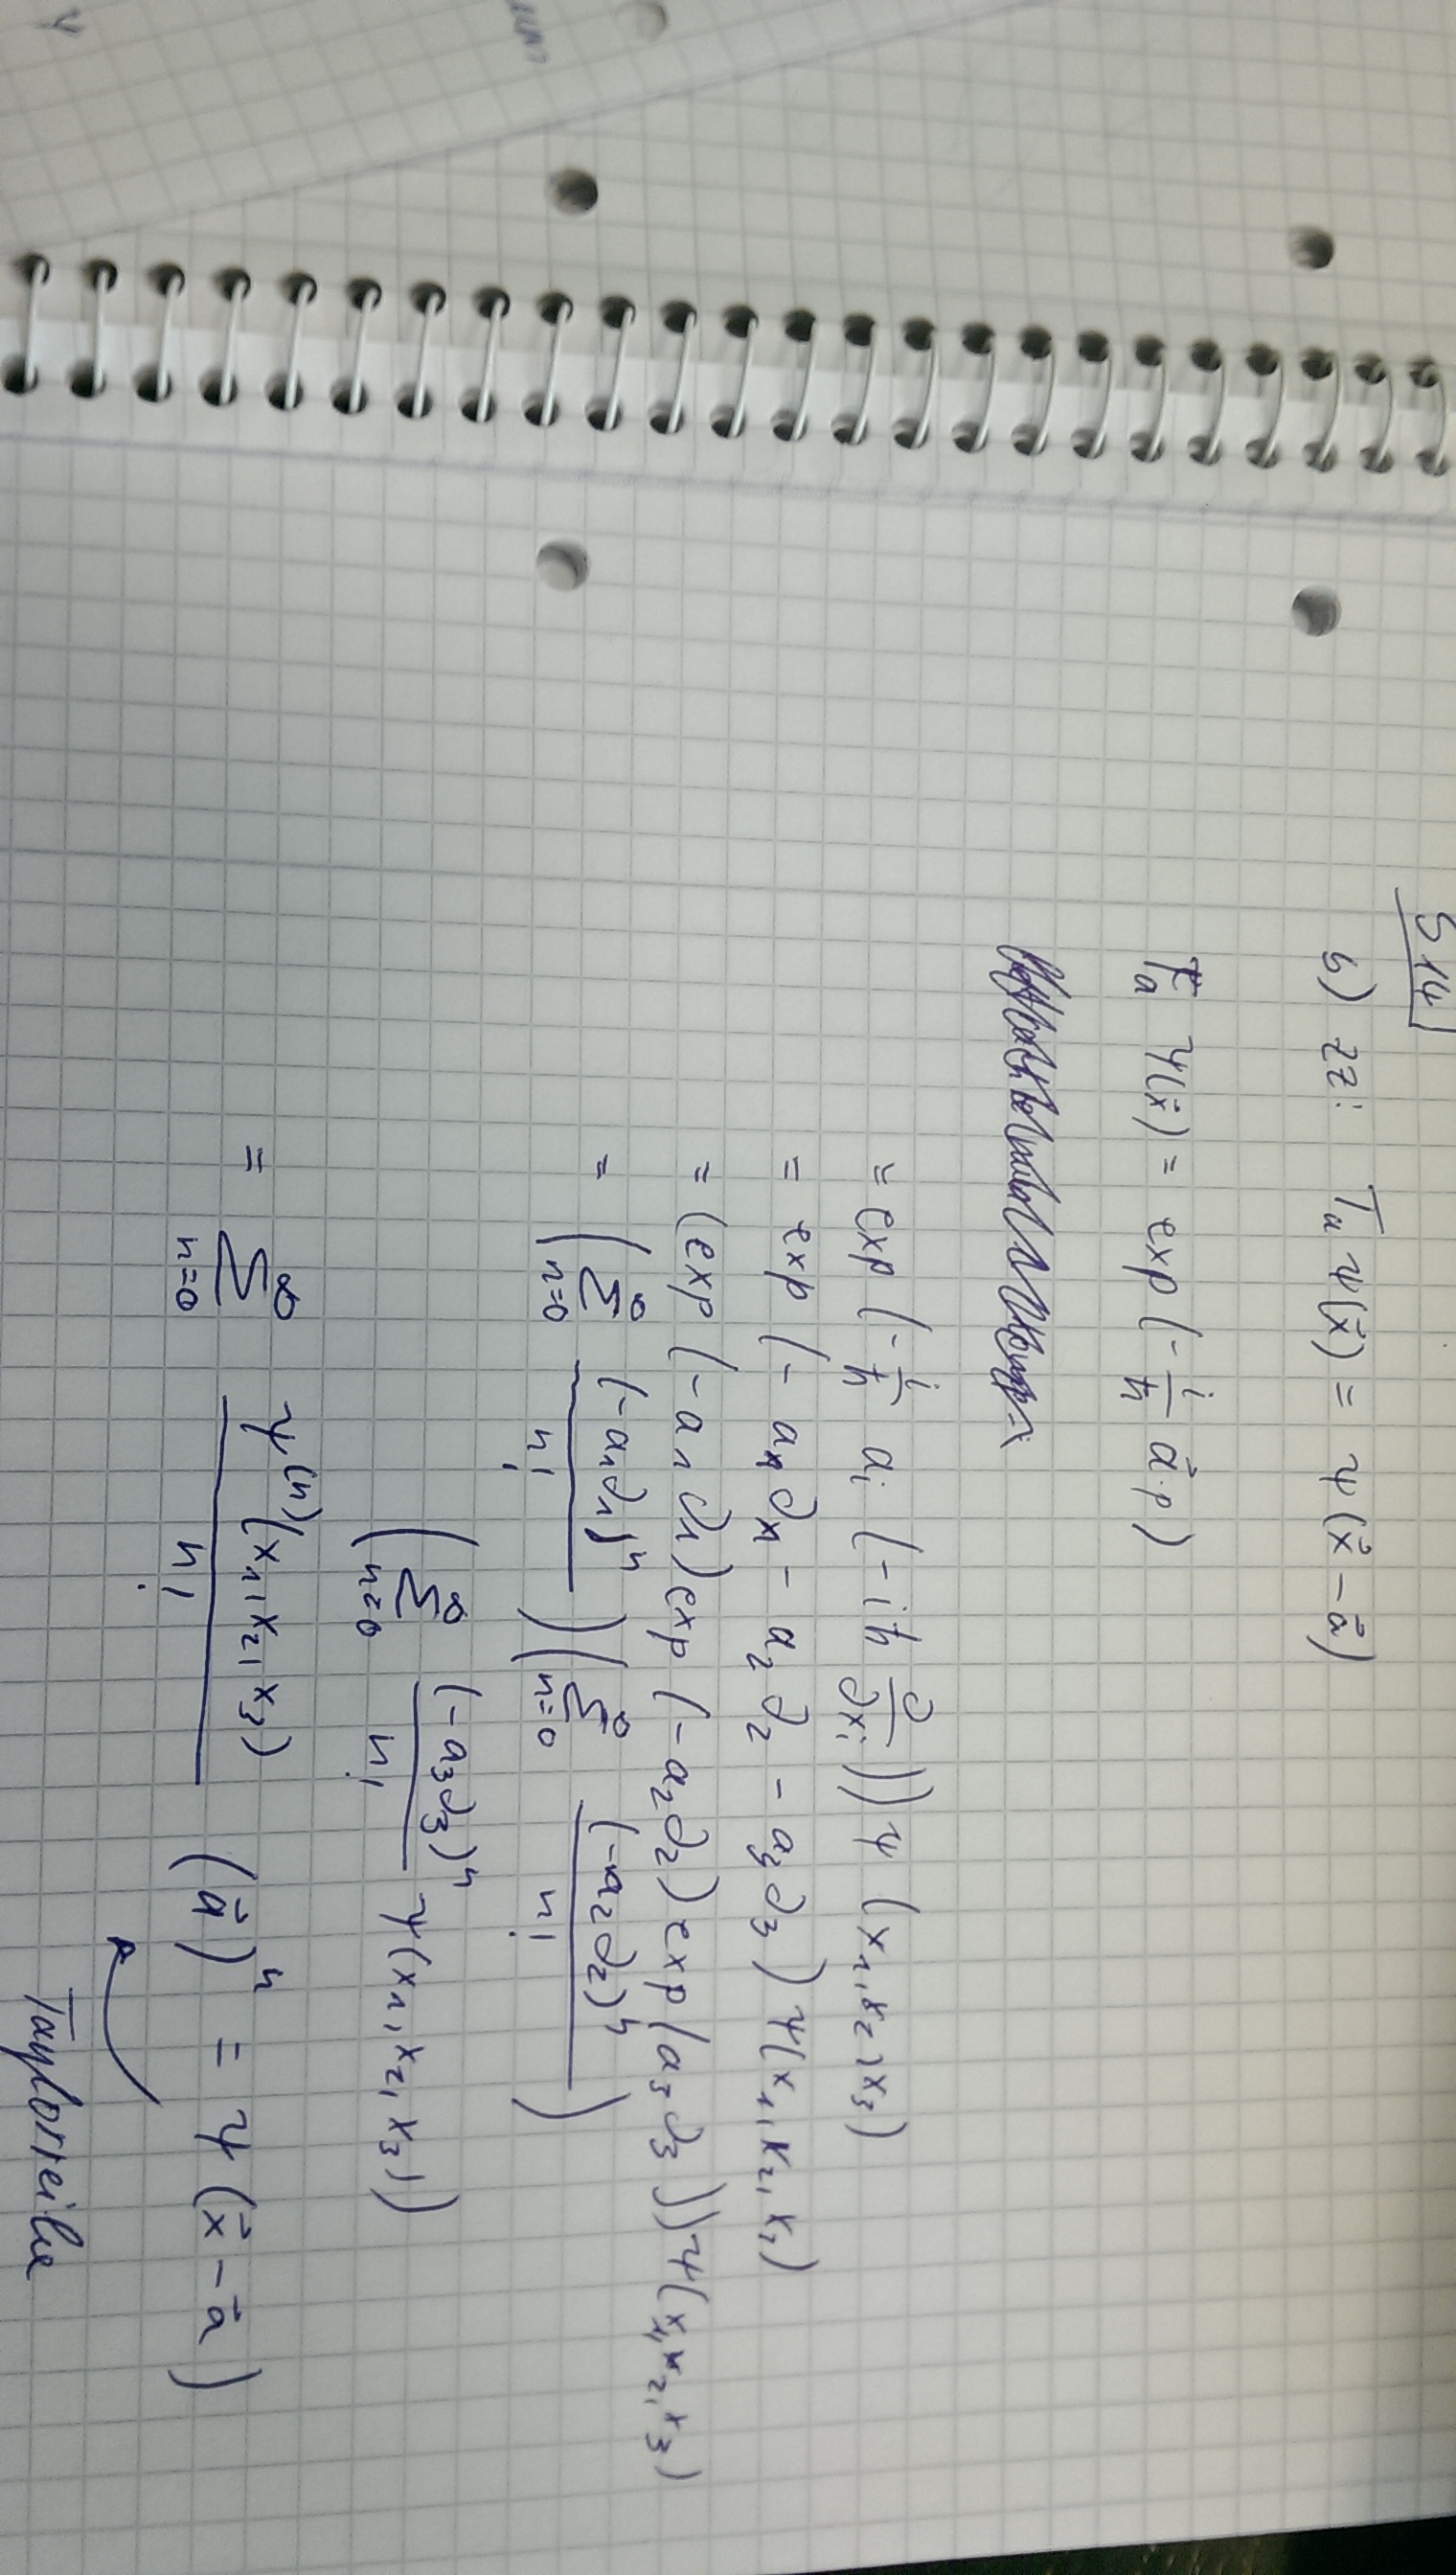 S14
b) zz: Tₐ ψ(x⃗) = ψ(x⃗ - a⃗)
Tₐ ψ(x⃗) = exp(-i/ħ a⃗·p)
= exp(-i/ħ aᵢ (-iħ ∂/∂xᵢ)) ψ(x₁,x₂,x₃)
= exp(-a₁∂₁ - a₂∂₂ - a₃∂₃) ψ(x₁,x₂,x₃)
= (exp(-a₁∂₁) exp(-a₂∂₂) exp(a₃∂₃)) ψ(x₁,x₂,x₃)
= (∑ₙ₌₀^∞ (-a₁∂₁)ⁿ/n!) (∑ₙ₌₀^∞ (-a₂∂₂)ⁿ/n!)
(∑ₙ₌₀^∞ (-a₃∂₃)ⁿ/n! ψ(x₁,x₂,x₃))
= ∑ₙ₌₀^∞ ψ⁽ⁿ⁾(x₁,x₂,x₃)/n! (a⃗)ⁿ = ψ(x⃗ - a⃗)
Taylorreihe